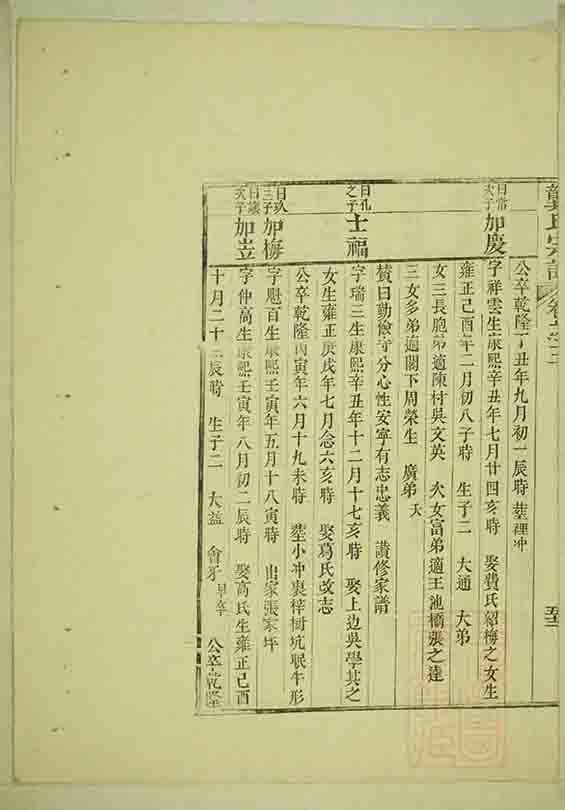 龔氏宗譜 卷之三
公卒乾隆丁丑年九月初一辰時 塟裡冲
曰常次子 加慶 字祥雲生康熙辛丑年七月廿四亥時 娶費氏紹梅之女生
雍正己酉年二月初八子時 生子二 大通 大弟
女三長胞弟適陳村吳文英 次女富弟適王池橋張之達
三女多弟適閣下周榮生 廣弟 夭
贊曰勤儉守分心性安寧有志忠義 讃修家譜
曰孔之子 士福 字瑞三生康熙辛丑年十二月十七亥時 娶上边吳學其之
女生雍正庚戌年七月念六亥時 娶葛氏改志
公卒乾隆丙寅年六月十九未時 塟小冲裏梓樹坑眠牛形
曰玖三子 加梅 字魁百生康熙壬寅年五月十八寅時 出家張家坪
次子 加岦 字仲高生康熙壬寅年八月初二辰時 娶高氏生雍正己酉
十月二十 辰時 生子二 大益 會矛 早卒 公卒乾隆